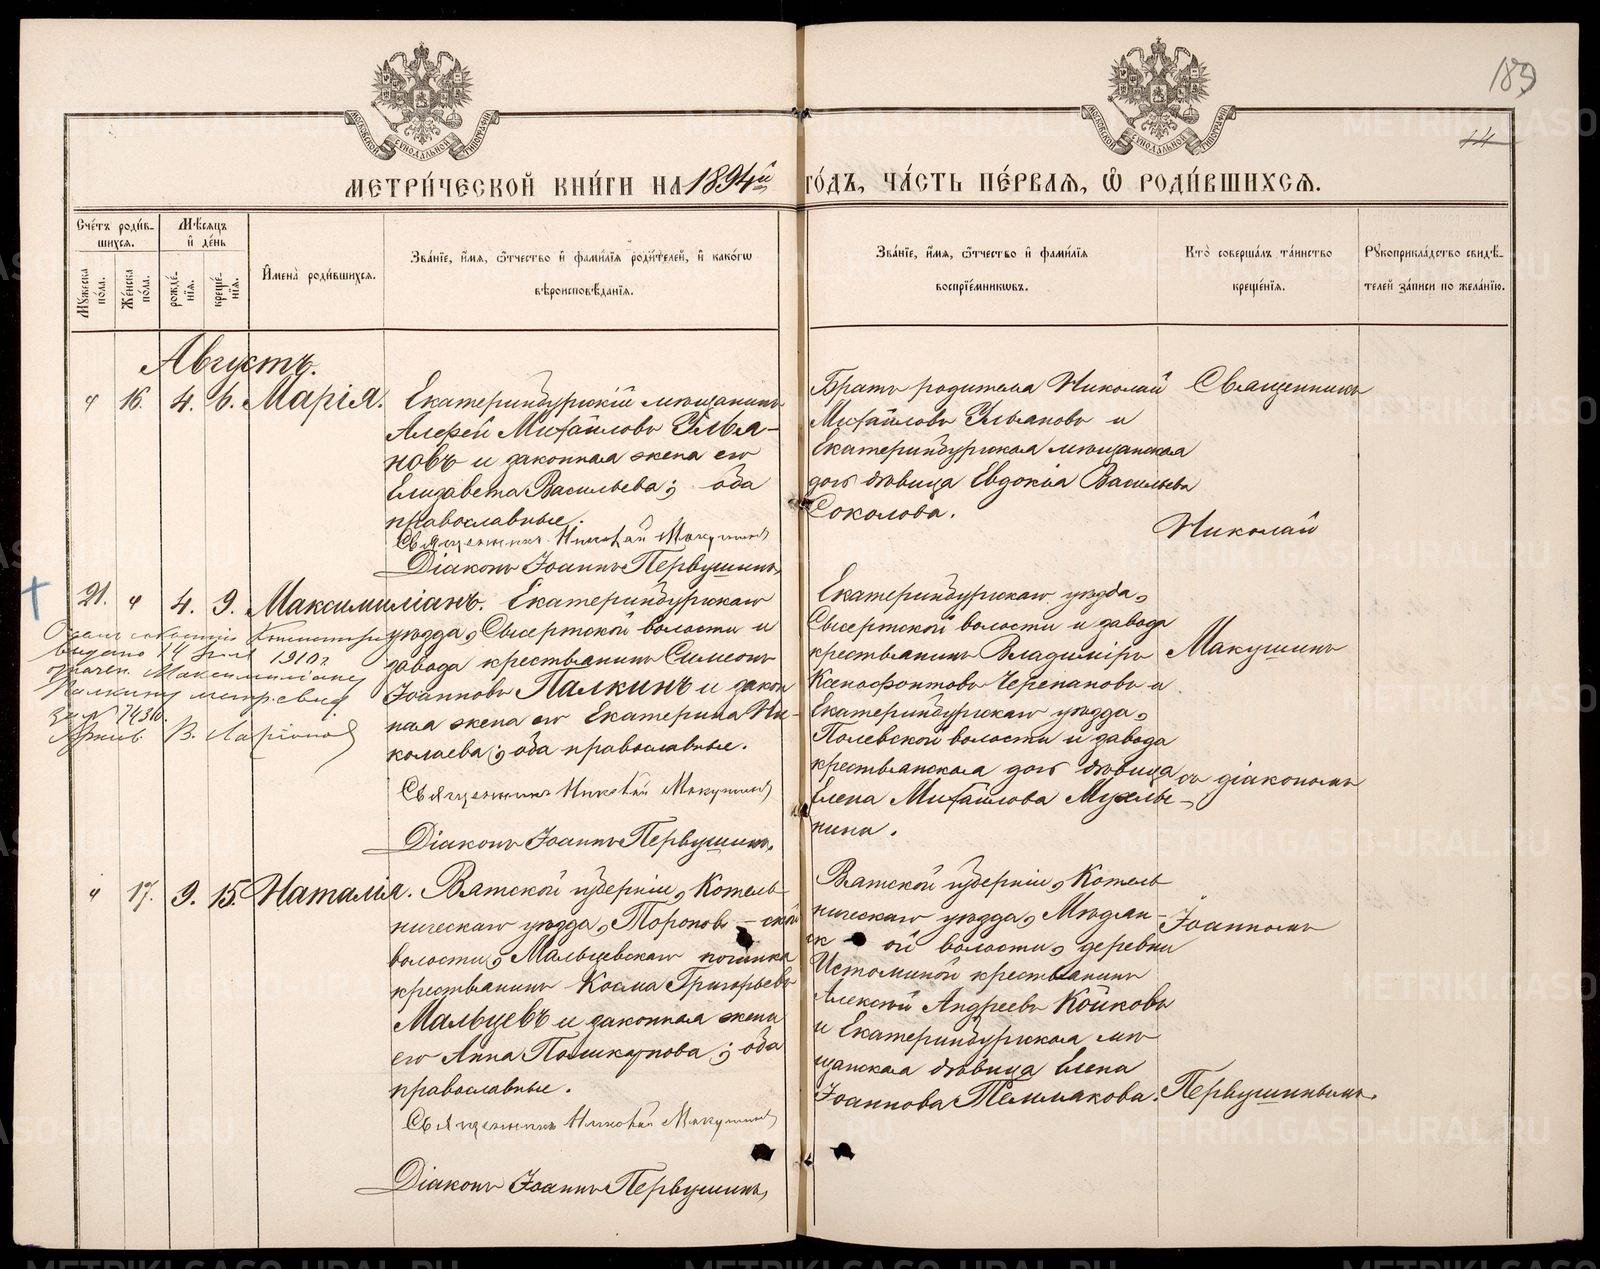 189
44
МЕТРИ́ЧЕСКОЙ КНИ́ГИ НА 1894й ГО́ДЪ, ЧА́СТЬ ПЕ́РВАЯ, Ѽ РОДИ́ВШИХСЯ.
Сче́тъ роди́в-
шихся.
Мѣ́сяцъ
и҆ де́нь
Мꙋ́жеска
по́ла.
Же́нска
по́ла.
рожде́-
нїя.
креще́-
нїя.
И҆мена̀ роди́вшихся.
Зва́нїе, и҆́мя, ѻ҆́тчество и҆ фами́лїя роди́телей, и҆ како́гѡ
вѣроисповѣ́данїя.
Зва́нїе, и҆́мя, ѻ҆́тчество и҆ фами́лїя
воспрїе́мникѡвъ.
Кто̀ соверша́лъ та́инство
креще́нїя.
Рꙋкоприкла́дство свидѣ́-
телей за́писи по жела́нїю.
Августъ.
ч 16. 4. 6. Марія.
Екатеринбургскій мѣщанинъ
Алексѣй Михайловъ Улья-
новъ и законная жена его
Елизавета Васильева; оба
православные.
Священникъ Николай Макушинъ
Діаконъ Іоаннъ Первушинъ,
Братъ родителя Николай
Михайловъ Ульяновъ и
Екатеринбургская мѣщанская
дочь дѣвица Евдокія Васильева
Соколова.
Священникъ
Николай
21. ч 4. 9. Максимиліанъ.
Екатеринбургскаго
уѣзда, Сысертской волости и
завода крестьянинъ Симеонъ
Іоанновъ Палкинъ и закон
ная жена его Екатерина Ни-
колаева; оба православные.
Священникъ Николай Макушинъ
Діаконъ Іоаннъ Первушинъ.
выдано 14 1910г
Максимиліану
Палкину метр. свид.
за № 7436.
Архив. В. Ларіонов
Екатеринбургскаго уѣзда,
Сысертской волости и завода
крестьянинъ Владиміръ
Ксенофонтовъ Черепановъ и
Екатеринбургскаго уѣзда,
Полевской волости и завода
крестьянская дочь дѣвица
Елена Михайлова Мухлы-
нина.
Макушинъ
съ діакономъ
ч 17. 9. 15. Наталія.
Вятской губерніи, Котель
ническаго уѣзда, Торопов-ской
волости, Мальцевскаго починка
крестьянинъ Косма Григорьевъ
Мальцевъ и законная жена
его Анна Поликарпова; оба
православные.
Священникъ Николай Макушинъ
Діаконъ Іоаннъ Первушинъ,
Вятской губерніи, Котель
ническаго уѣзда, Мѣдян-
ск-ой волости, деревни
Истоминой крестьянинъ
Алексѣй Андреевъ Койковъ
и Екатеринбургская мѣ
щанская дѣвица Елена
Іоаннова Теплякова.
Іоанномъ
Первушинымъ.